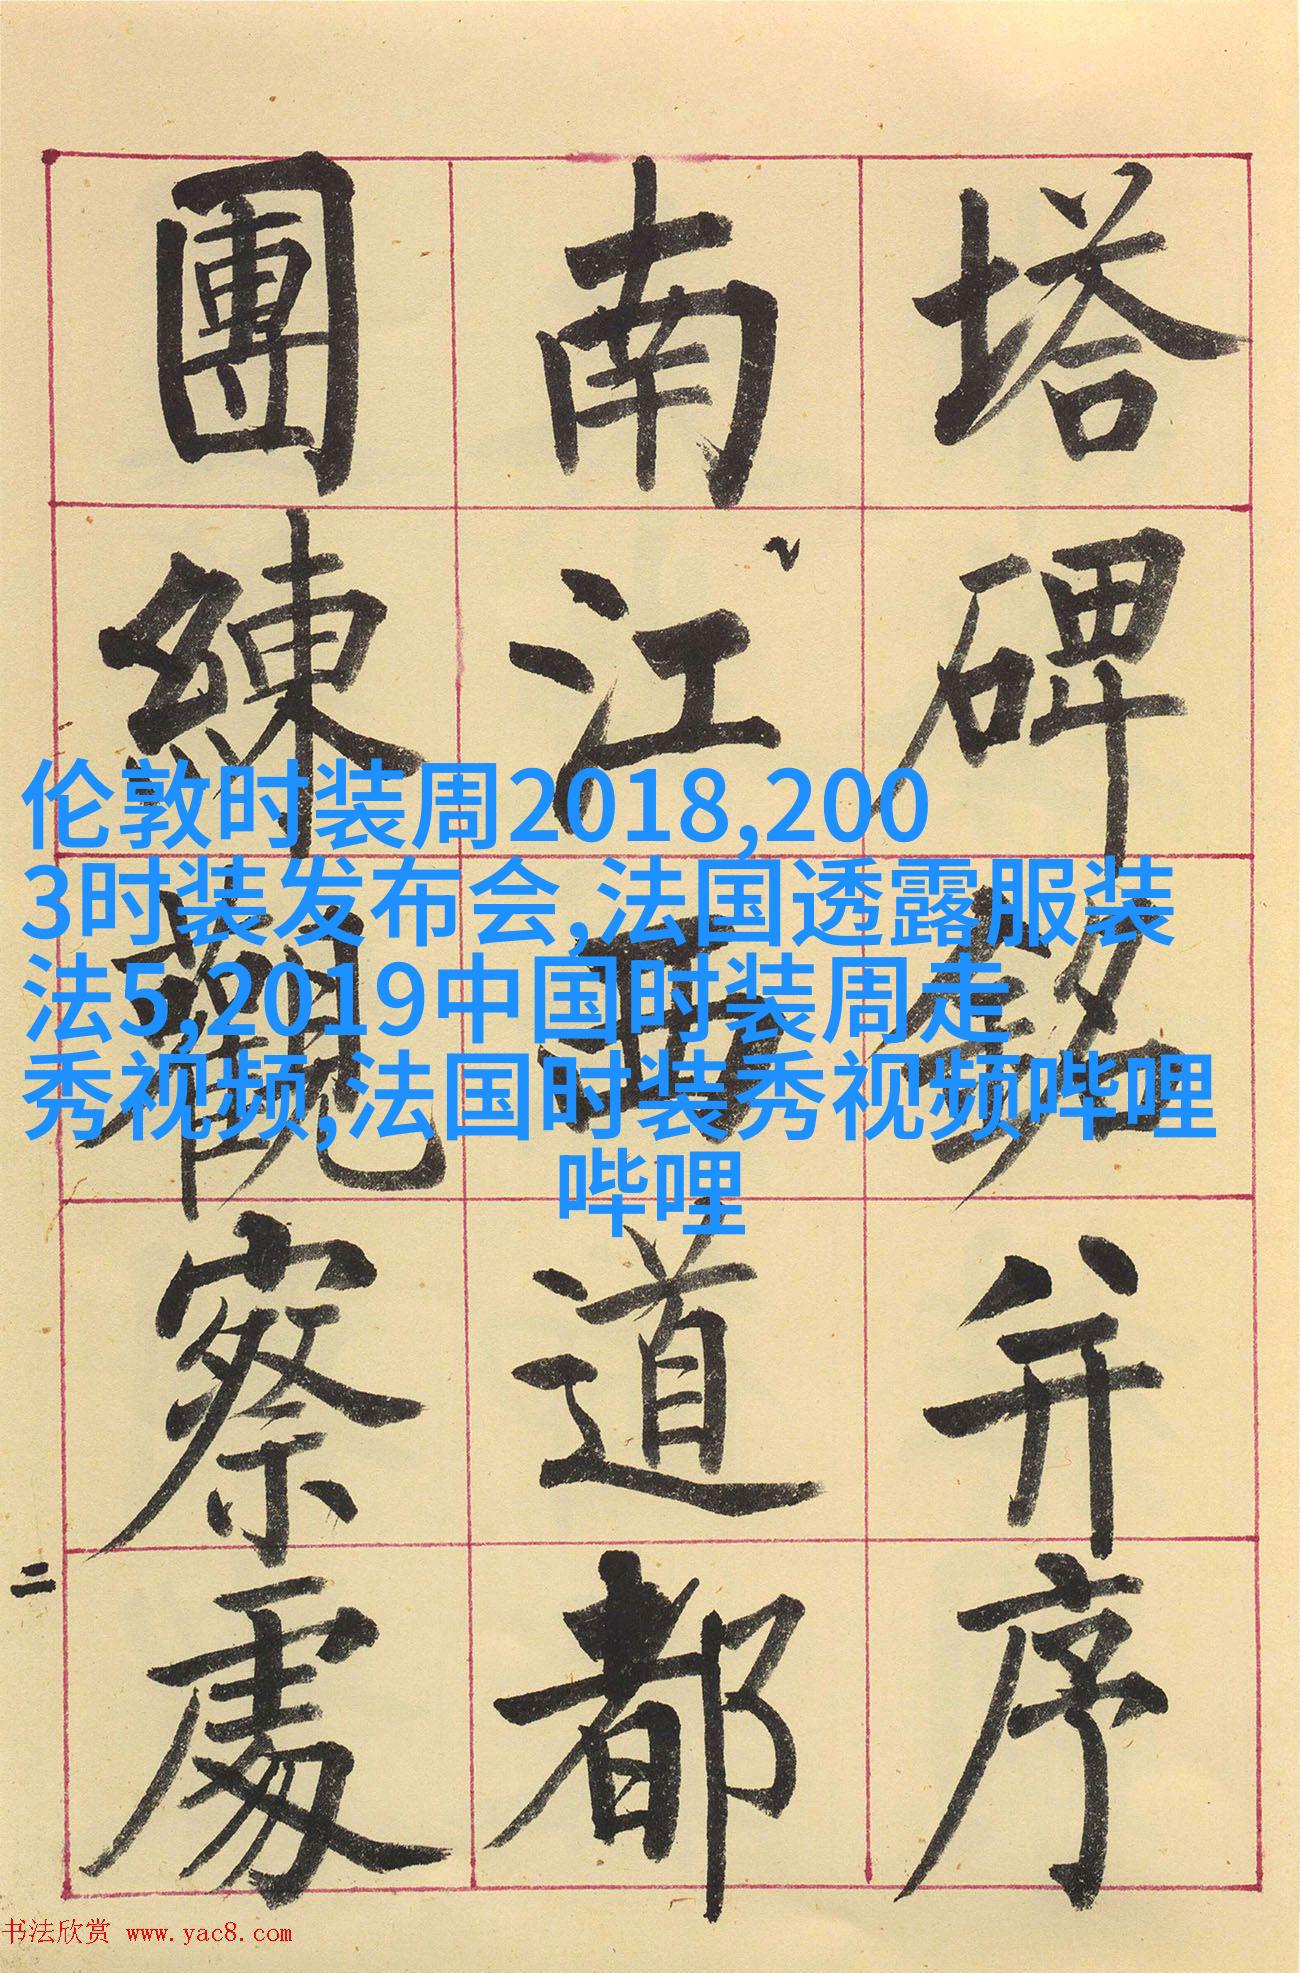 塔碑銘并序
南江西道都
團練觀察處
二
伦敦时装周2018,200
3时装发布会,法国透露服装
法5,2019中国时装周走
秀视频,法国时装秀视频哔哩
哔哩
书法欣赏 www.yac8.com